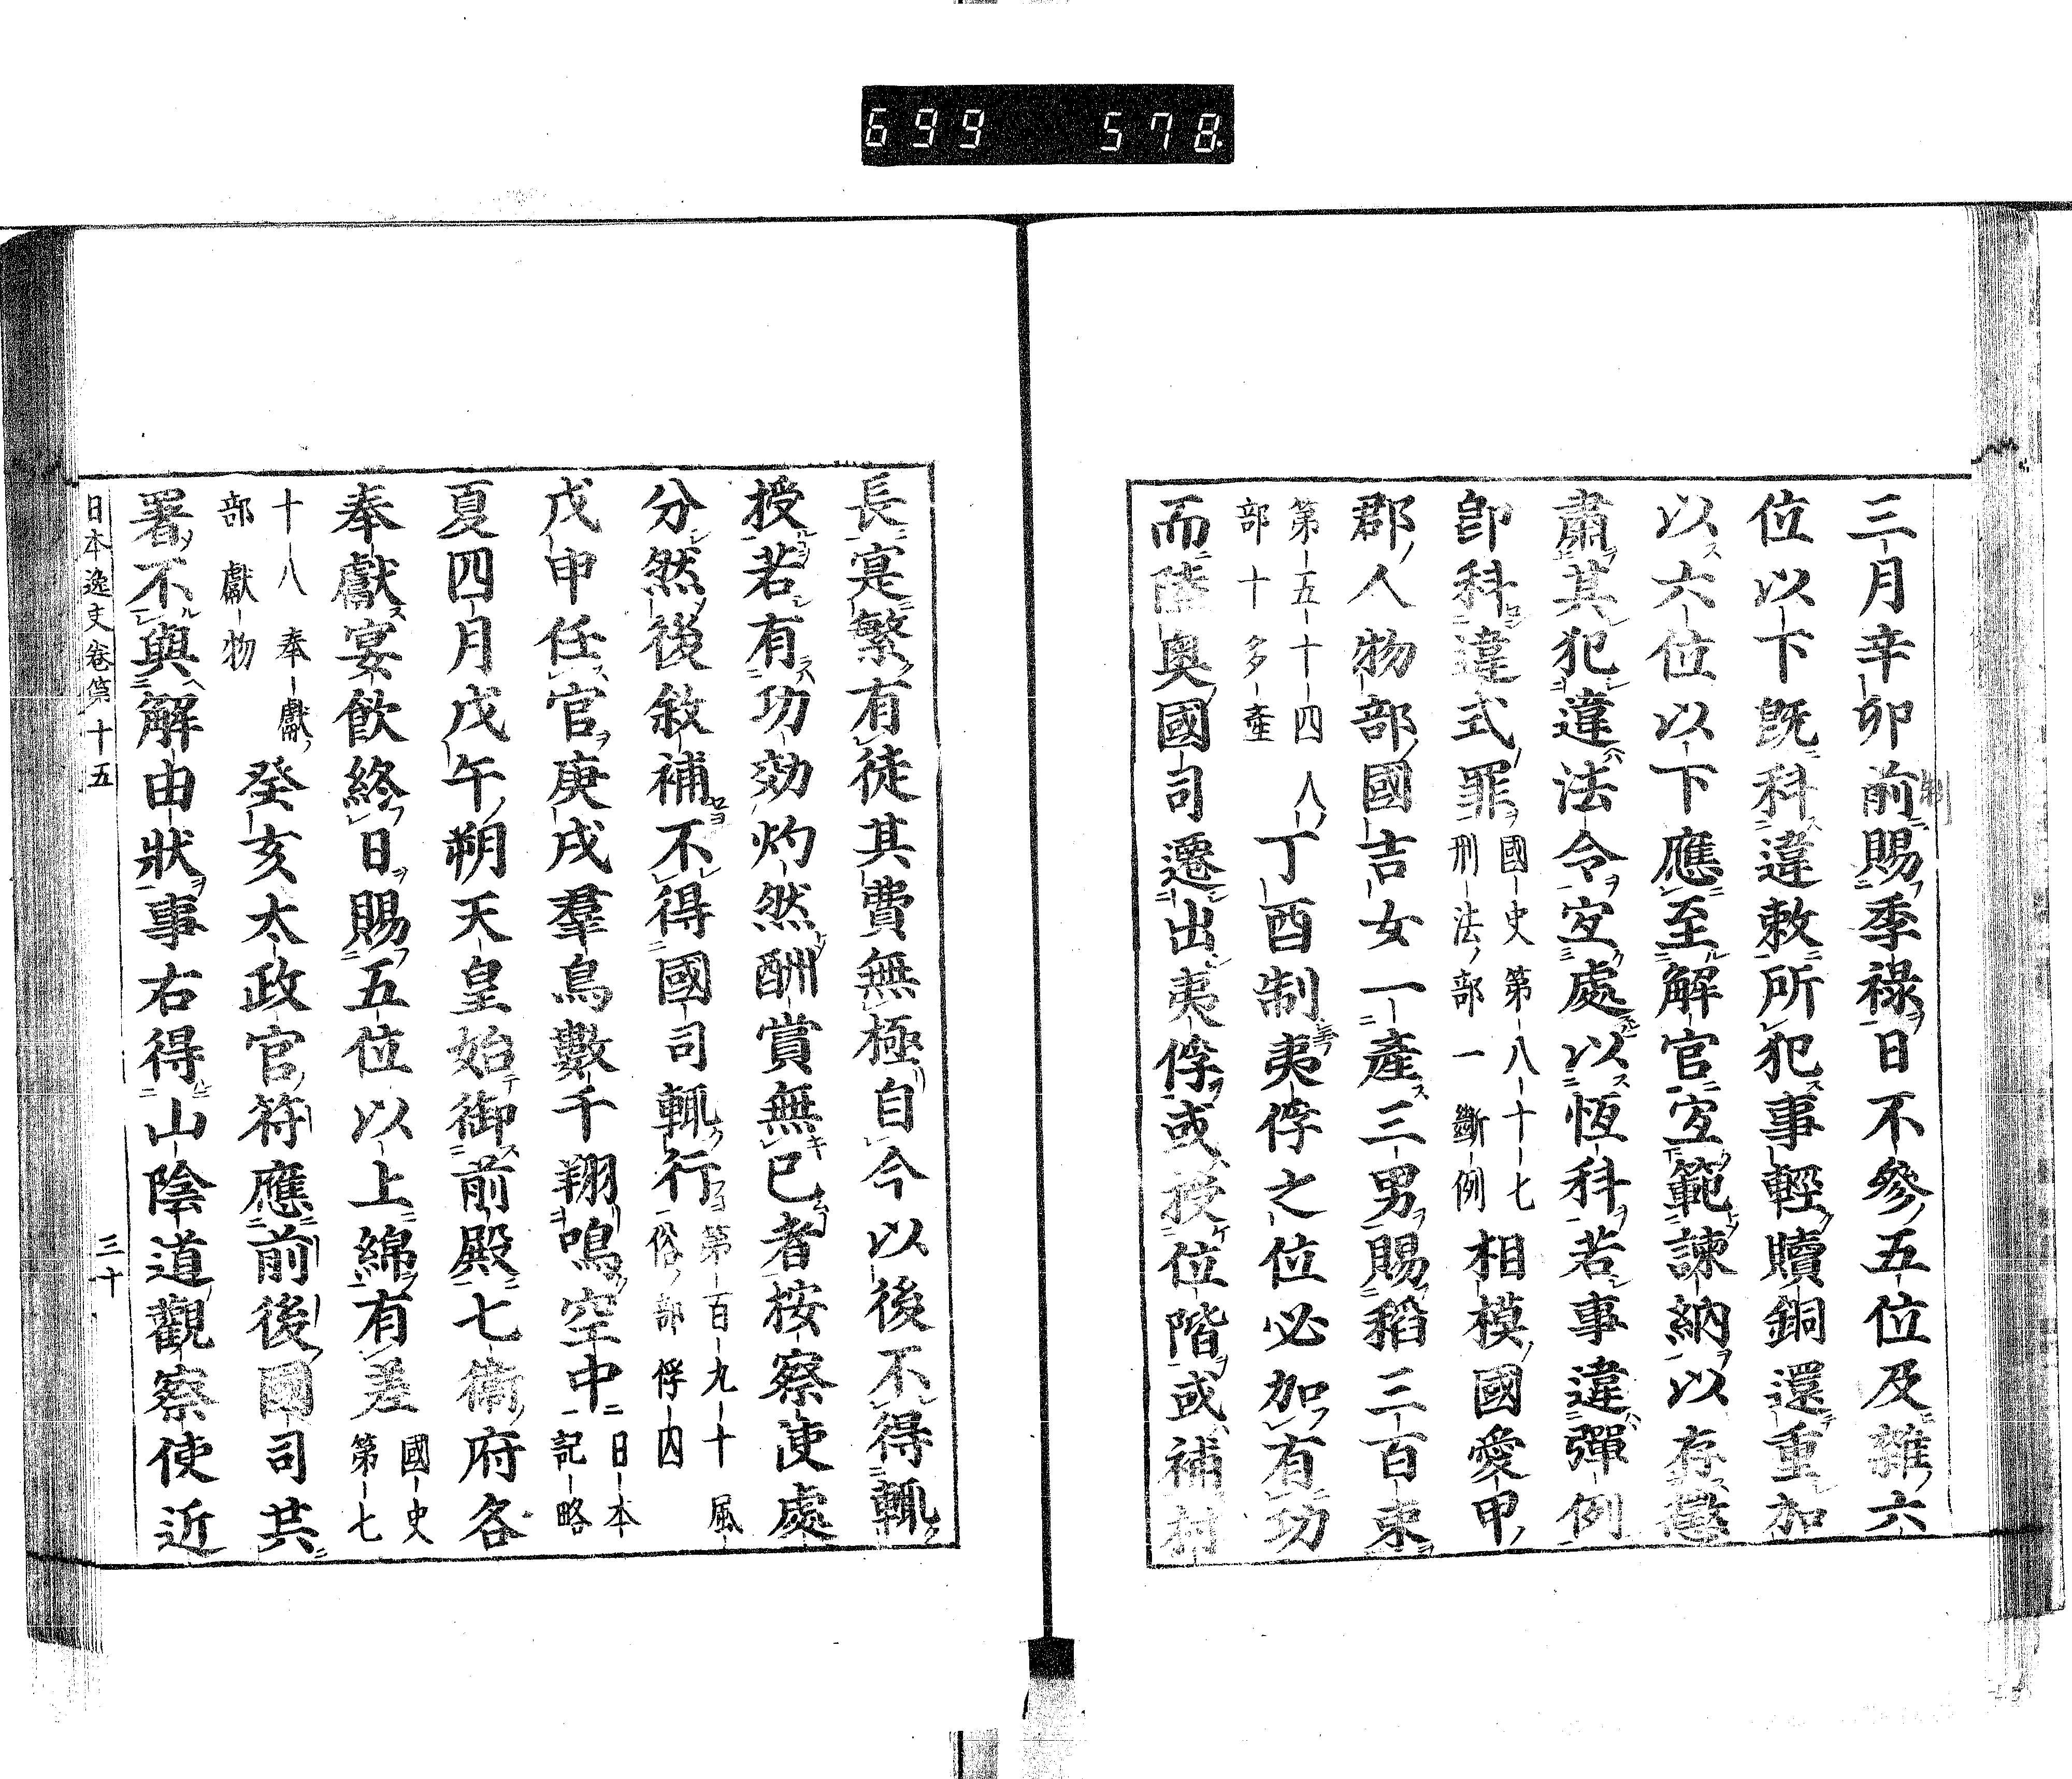 699 578
三月辛卯前賜季祿日不參五位及雜六
制
位以下旣科違敕所犯事輕贖銅還重加
以六位以下應至解官宐範諫納以存懲
肅其犯違法令宐處以恆科若事違彈例
卽科違式罪國史第八十七
刑法部一斷例相模國愛甲
郡人物部國吉女一產三男賜稻三百束
第五十四人
部十多產丁酉制夷俘之位必加有功
而陸奧國司遷出夷俘或授位階或補村
長寔繁有徒其費無極自今以後不得輒
授若有功効灼然酬賞無已者按察使處
分然後敘補不得國司輒行第百九十風
俗部俘囚
戊申任官庚戌羣鳥數千翔鳴空中日本
記略
夏四月戊午朔天皇始御前殿七衞府各
奉獻宴飮終日賜五位以上綿有差國史
第七
十八奉獻
部獻物癸亥太政官符應前後國司共
署不與解由狀事右得山陰道觀察使近
日本逸史卷第十五 三十